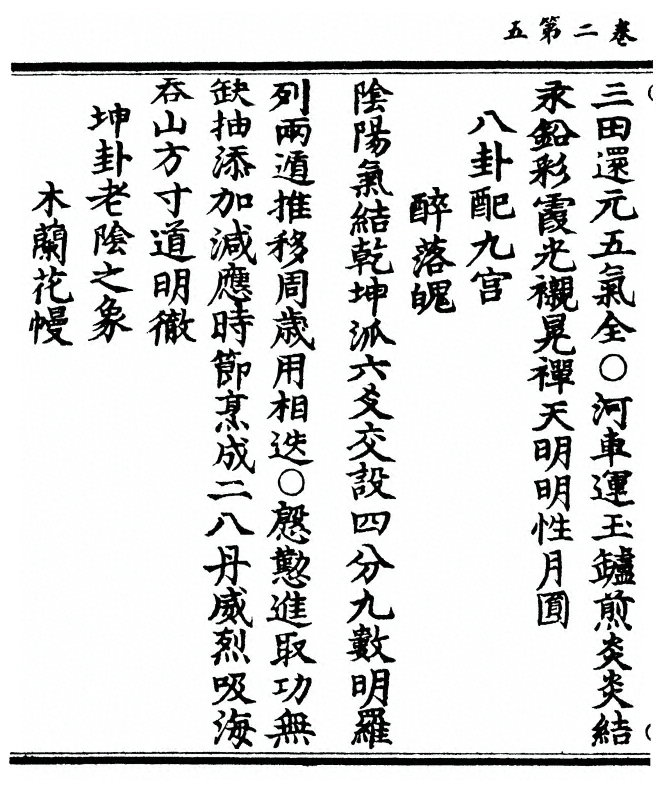 卷二第五
三田還元五氣全○河車運玉鑪煎炎炎結
汞鉛彩霞光襯晃禪天明明性月圓
八卦配九宫
醉落魄
陰陽氣結乾坤派六爻交設四分九數明羅
列兩遁推移周歲用相迭○慇懃進取功無
缺抽添加減應時節烹成二八丹威烈吸海
吞山方寸道明徹
坤卦老陰之象
木蘭花幔